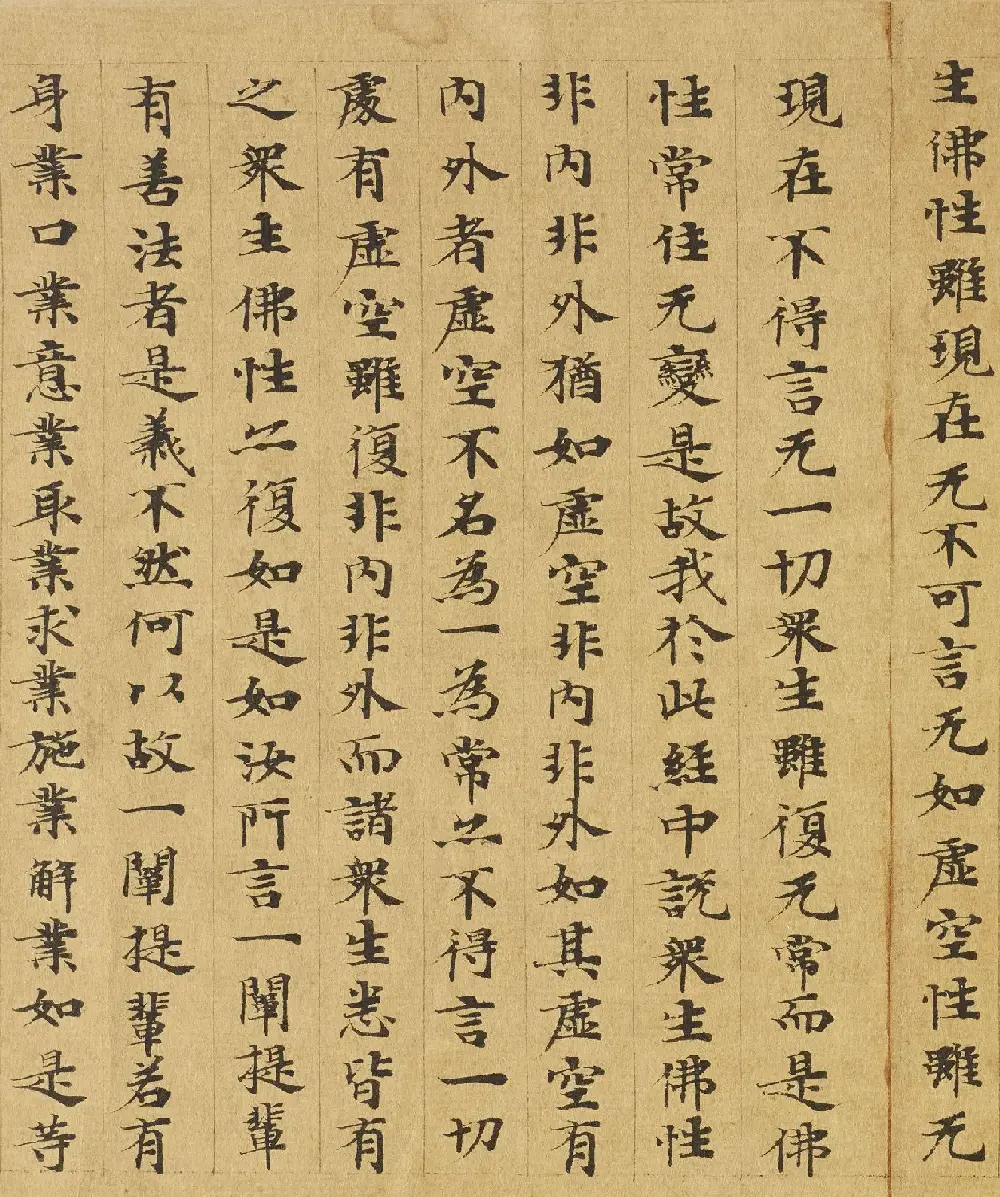 生佛性雖現在无不可言无如虛空性雖无
現在不得言无一切衆生雖復无常而是佛
性常住无變是故我於此經中說衆生佛性
非內非外猶如虛空非內非外如其虛空有
內外者虛空不名為一為常亦不得言一切
處有虛空雖復非內非外而諸衆生悉皆有
之衆生佛性亦復如是如汝所言一闡提輩
有善法者是義不然何以故一闡提輩若有
身業口業意業取業求業施業解業如是等